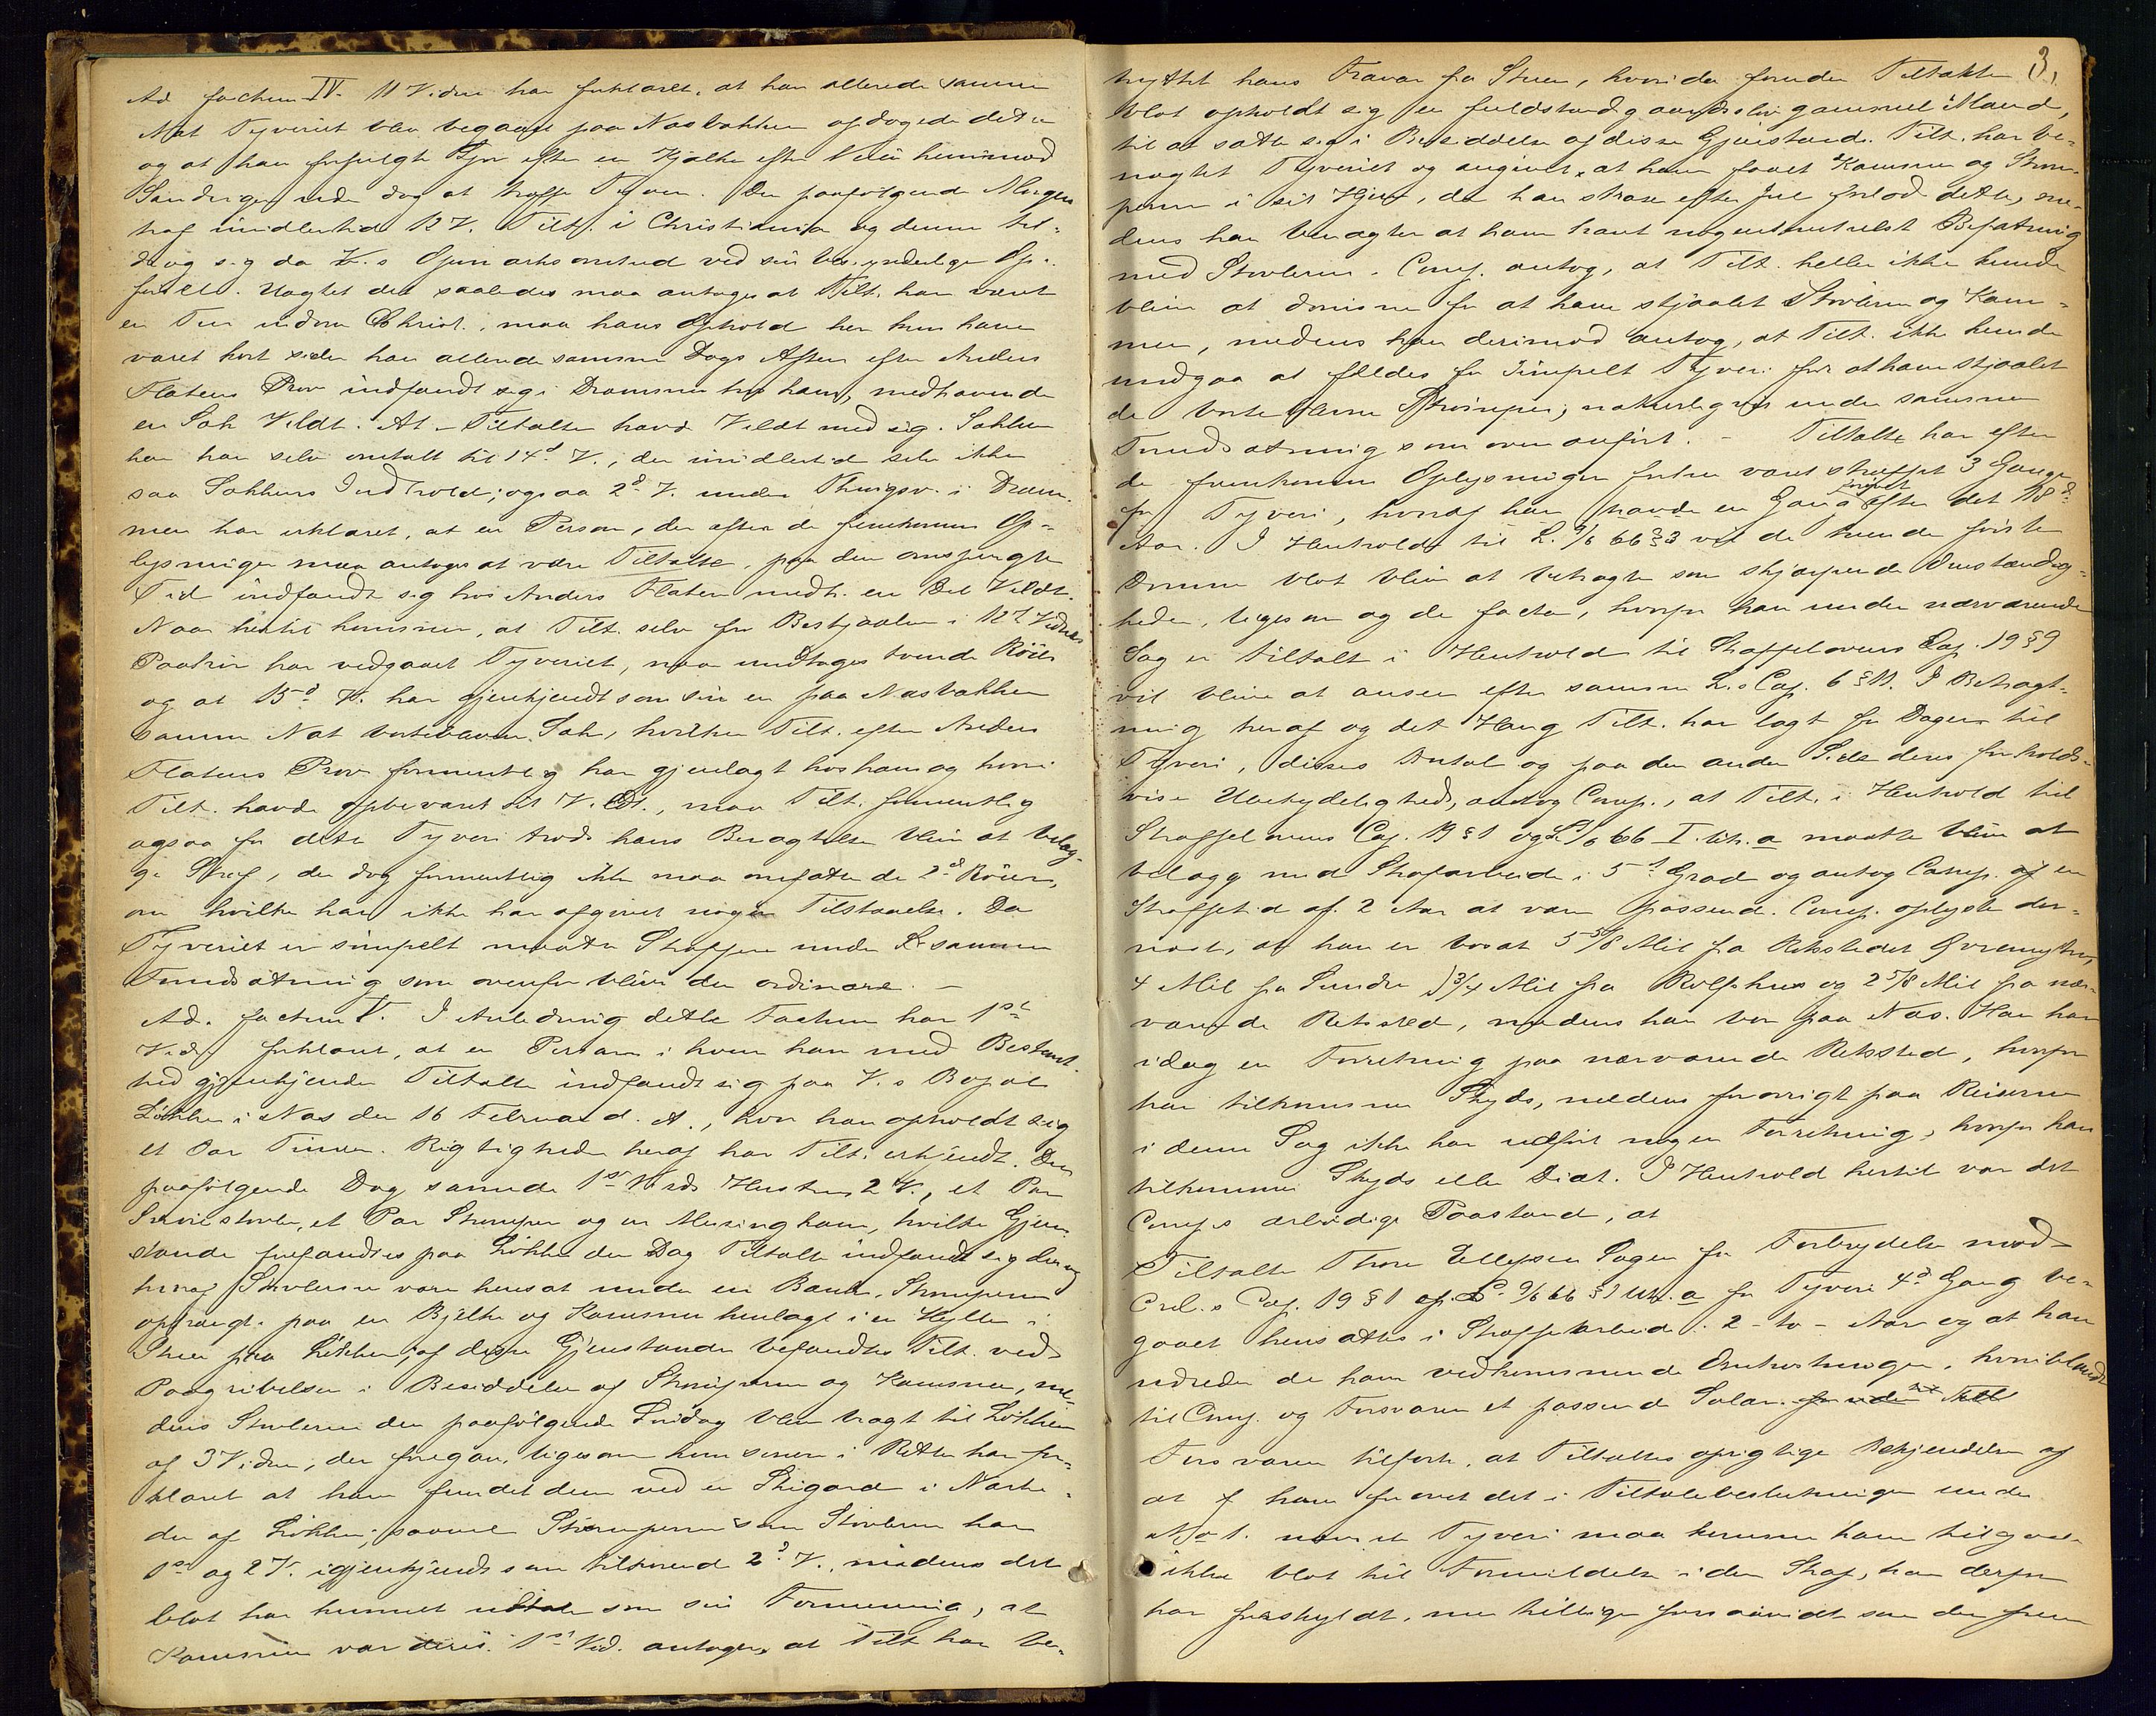 Ad factum IV. 11 Vidne har forklaret, at han allerede samme
Nat Tyveriet blev begaaet paa Næsbakken opdagede dette
og at han forfulgte Spor efter en Kjælke efter Veien henimod
Sandvigen uden dog at træffe Tyven. Den paafølgende Morgen
traf imidlertid 12 V. Tilt. i Christiania og denne til-
drog sig da V.s Opmærksomhed ved sin besynderlige Op-
førsel. Uagtet det saaledes maa antages at Tilt. har været
en Tur indom Christ., maa hans Ophold her kun have
været kort siden han allerede samme Dags Aften efter Anders
Flatens Prov indfandt sig i Drammen hos ham, medhavende
en Sæk Vildt. At Tiltalte havde Vildt med sig i Sækken
har han selv omtalt til 14d V., der imidlertid selv ikke
saa Sækkens Indhold; ogsaa 2d V. under Thingsv. i Dram-
men har erklæret, at en Person, der efter de fremkomne Op-
lysninger maa antages at være Tiltalte, paa den omspurgte
Tid indfandt sig hos Anders Flaten medh. en Del Vildt.
Naar hertil kommer, at Tilt. selv for Bestjaalne i 12 Vidnes
Paahør har vedgaaet Tyveriet, maa undtages tvende Röier
og at 15d V. har gjenkjendt som sin en paa Næsbakken
samme Nat bortkommen Sæk, hvilken Tilt. efter Anders
Flatens Prov formentlig har gjenlagt hos ham og hvori
Tilt. havde opbevaret sit Vildt, maa Tilt. formentlig
ogsaa for dette Tyveri trods hans Benægtelse blive at belæg-
ge Straf, der dog formentlig ikke maa omfatte de 2d Röier,
om hvilke han ikke har afgivet nogen Tilstaaelse. Da
Tyveriet er simpelt maatte Straffen under samme
Forudsætning som ovenfor blive den ordinære. –
Ad. factum V. I Anledning dette Factum har 1ste
Vidne forklaret, at en Person i hvem han med Bestemt-
hed gjenkjender Tiltalte indfandt sig paa V.s Bopæl
Løkken i Næs den 16 Februar d. A., hvor han opholdt sig
et Par Timer. Rigtigheden heraf har Tilt. erkjendt. Den
paafølgende Dag savnede 1ste Vids Hustru 2 V., et Par
Snørestøvler, et Par Strømper og en Messingkam, hvilke Gjen-
stande forefandtes paa Løkken den Dag Tiltalte indfandt sig der og
hvoraf Støvlerne vare hensat under en Bænk, Strømperne
ophængt paa en Bjelke og Kammen henlagt i en Hylde i
Stuen paa Løkken; af disse Gjenstande befandtes Tilt. ved
Paagribelsen i Besiddelse af Strømperne og Kammen, me-
dens Støvlerne den paafølgende Fredag blev bragt til Løkken
af 3 Vidne, der foregav, ligesom hun senere i Retten har for-
klaret at have fundet dem ved en Skigard i Nærhe-
den af Løkken; saavel Strømperne som Støvlerne har
1ste og 2 V. igjenkjendt som tilhørende 2d V., medens det
blot har kunnet udtale som sin Formening, at
Kammen var deres. 1ste Vid. antager, at Tilt. har be-
3,
nyttet hans Fravær fra Stuen, hvori da foruden Tiltalte
blot opholdt sig en fuldstændig aandssløv gammel Mand,
til at sætte sig i Besiddelse af disse Gjenstande. Tilt. har be-
nægtet Tyveriet og angivet, at have faaet Kammen og Strøm-
perne i sit Hjem, da han strax efter Jul forlod dette, me-
dens han benægter at have havt nogensomhelst Befatning
med Støvlerne. Comp. antog, at Tilt. heller ikke kunde
blive at dømme for at have stjaalet Støvlerne og Kam-
men, medens han derimod antog, at Tilt. ikke kunde
undgaa at fældes for simpelt Tyveri for at have stjaalet
de bortkomne Strømper; naturligvis under samme
Forudsætning som oven anført. – Tiltalte har efter
de fremkomne Oplysninger forhen været straffet 3 Gange
for Tyveri, hvoraf han havde en Gang øvet efter det 18d
Aar. I Henhold til L. 9/6 66 § 3 vil de tvende første
Domme blot blive at betragte som skjærpende Omstændig-
heder, ligesom og de facta, hvorfor han under nærværende
Sag er tiltalt i Henhold til Straffelovens Cap. 19 § 9
vil blive at ansee efter samme L.s Cap. 6 § 11. I Betragt-
ning heraf og det Hang Tilt. har lagt for Dagen til
Tyveri, disses Antal og paa den anden Side deres forholds-
vise Ubetydelighed, antog Comp., at Tilt. i Henhold til
Straffelovens Cap. 19 § 1 og L 9/6 66 I. litr. a maatte blive at
belægge med Strafarbeide i 5te Grad og antog Comp. af en
Straffetid af 2 Aar at være passende. Comp. oplyste der-
næst, at han er bosat 5 5/8 Mil fra Retsstedet
4 Mil fra Sundre 3/4 Mil fra Rolfshus og 2 5/8 Mil fra nær-
værende Retssted, medens han bor paa Næs. Han har
idag en Forretning paa nærværende Retssted, hvorfor
han tilkommer Skyds, medens forøvrigt paa Reiserne
i denne Sag ikke har udført nogen Forretning, hvorfor han
tilkommer Skyds eller Diæt. I Henhold hertil var det
Comp.s ærbødige Paastand, at
Tiltalte Thore Ellefsen Sagen for Forbrydelse mod
Crl.s Cap. 19 § 1 cfr. L. 9/6 66 § 1 litr. a for Tyveri 4d Gang be-
gaaet hensættes i Strafarbeid i 2 – to – Aar og at han
udreder de ham vedkommende Omkostninger, hvoriblandt
til Comp. og Forsvaren et passende Salær.
Forsvaren tilførte, at Tiltaltes oprigtige Bekjendelse af
at have forøvet det i Tiltalebeslutningen under
No 1. nævnte Tyveri maa komme ham tilgode
ikke blot til Formildelse i den Straf, han derfor
har forskyldt, men tillige forsaavidt som den frem